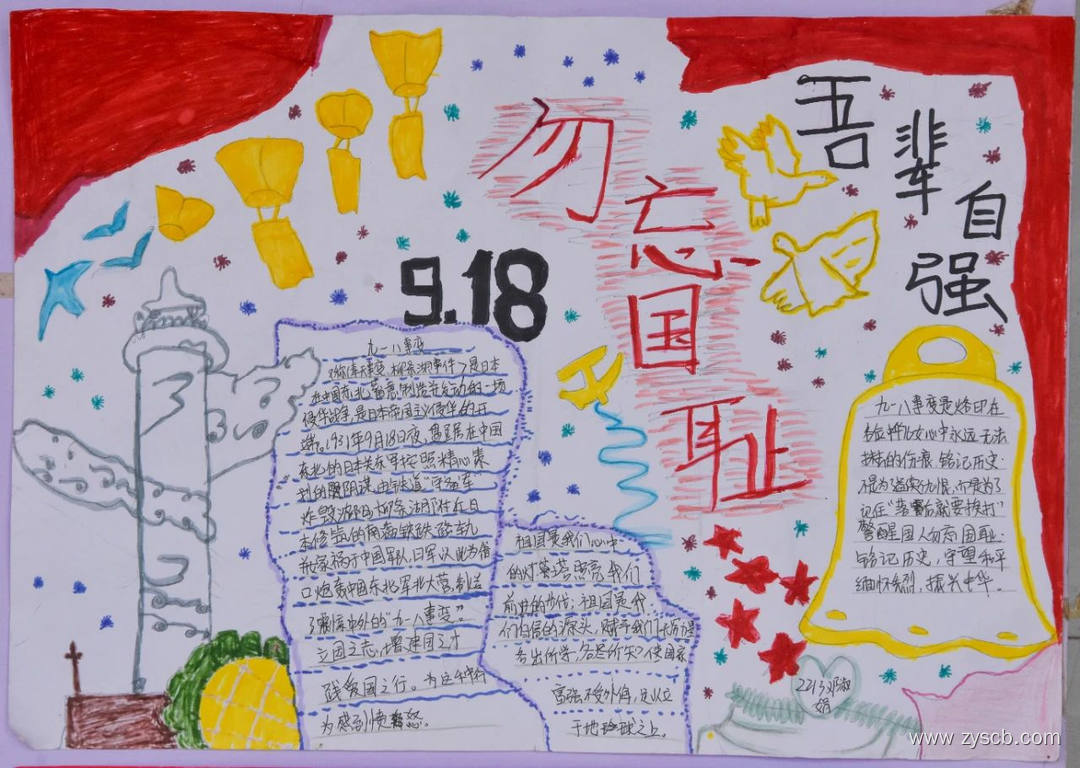 勿忘国耻
吾辈自强
9.18
九一八事变
(又称奉天事变、柳条湖事件)是日本
在中国东北蓄意制造并发动的一场
侵华战争,是日本帝国主义侵华的开
端。1931年9月18日夜,盘踞在中国
东北的日本关东军按照精心策
划的阴谋,由铁道"守备军"
炸毁沈阳柳条湖附近日
本修筑的南满铁路路轨
并嫁祸于中国军队,日军以此为借
口炮轰中国东北军北大营,制造
了震惊中外的"九一八事变"。
立国之志,增建国之才
践爱国之行。为这种行
为感到愤怒。
祖国是我们心中
的灯塔,照亮我们
前进的步伐;祖国是我
们自信的源头,赋予我们
务出所学,各尽所天?使国家
富强不受外侮,足以立
于地球之上。
九一八事变是烙印在
女儿心中永远无法
抹去的伤痕。铭记历史
不是为延续仇恨,而是为了
记住"落后就要挨打"
警醒国人勿忘国耻
铭记历史,守望和平
缅怀先烈,振兴中华。
2213
www.zyscb.com